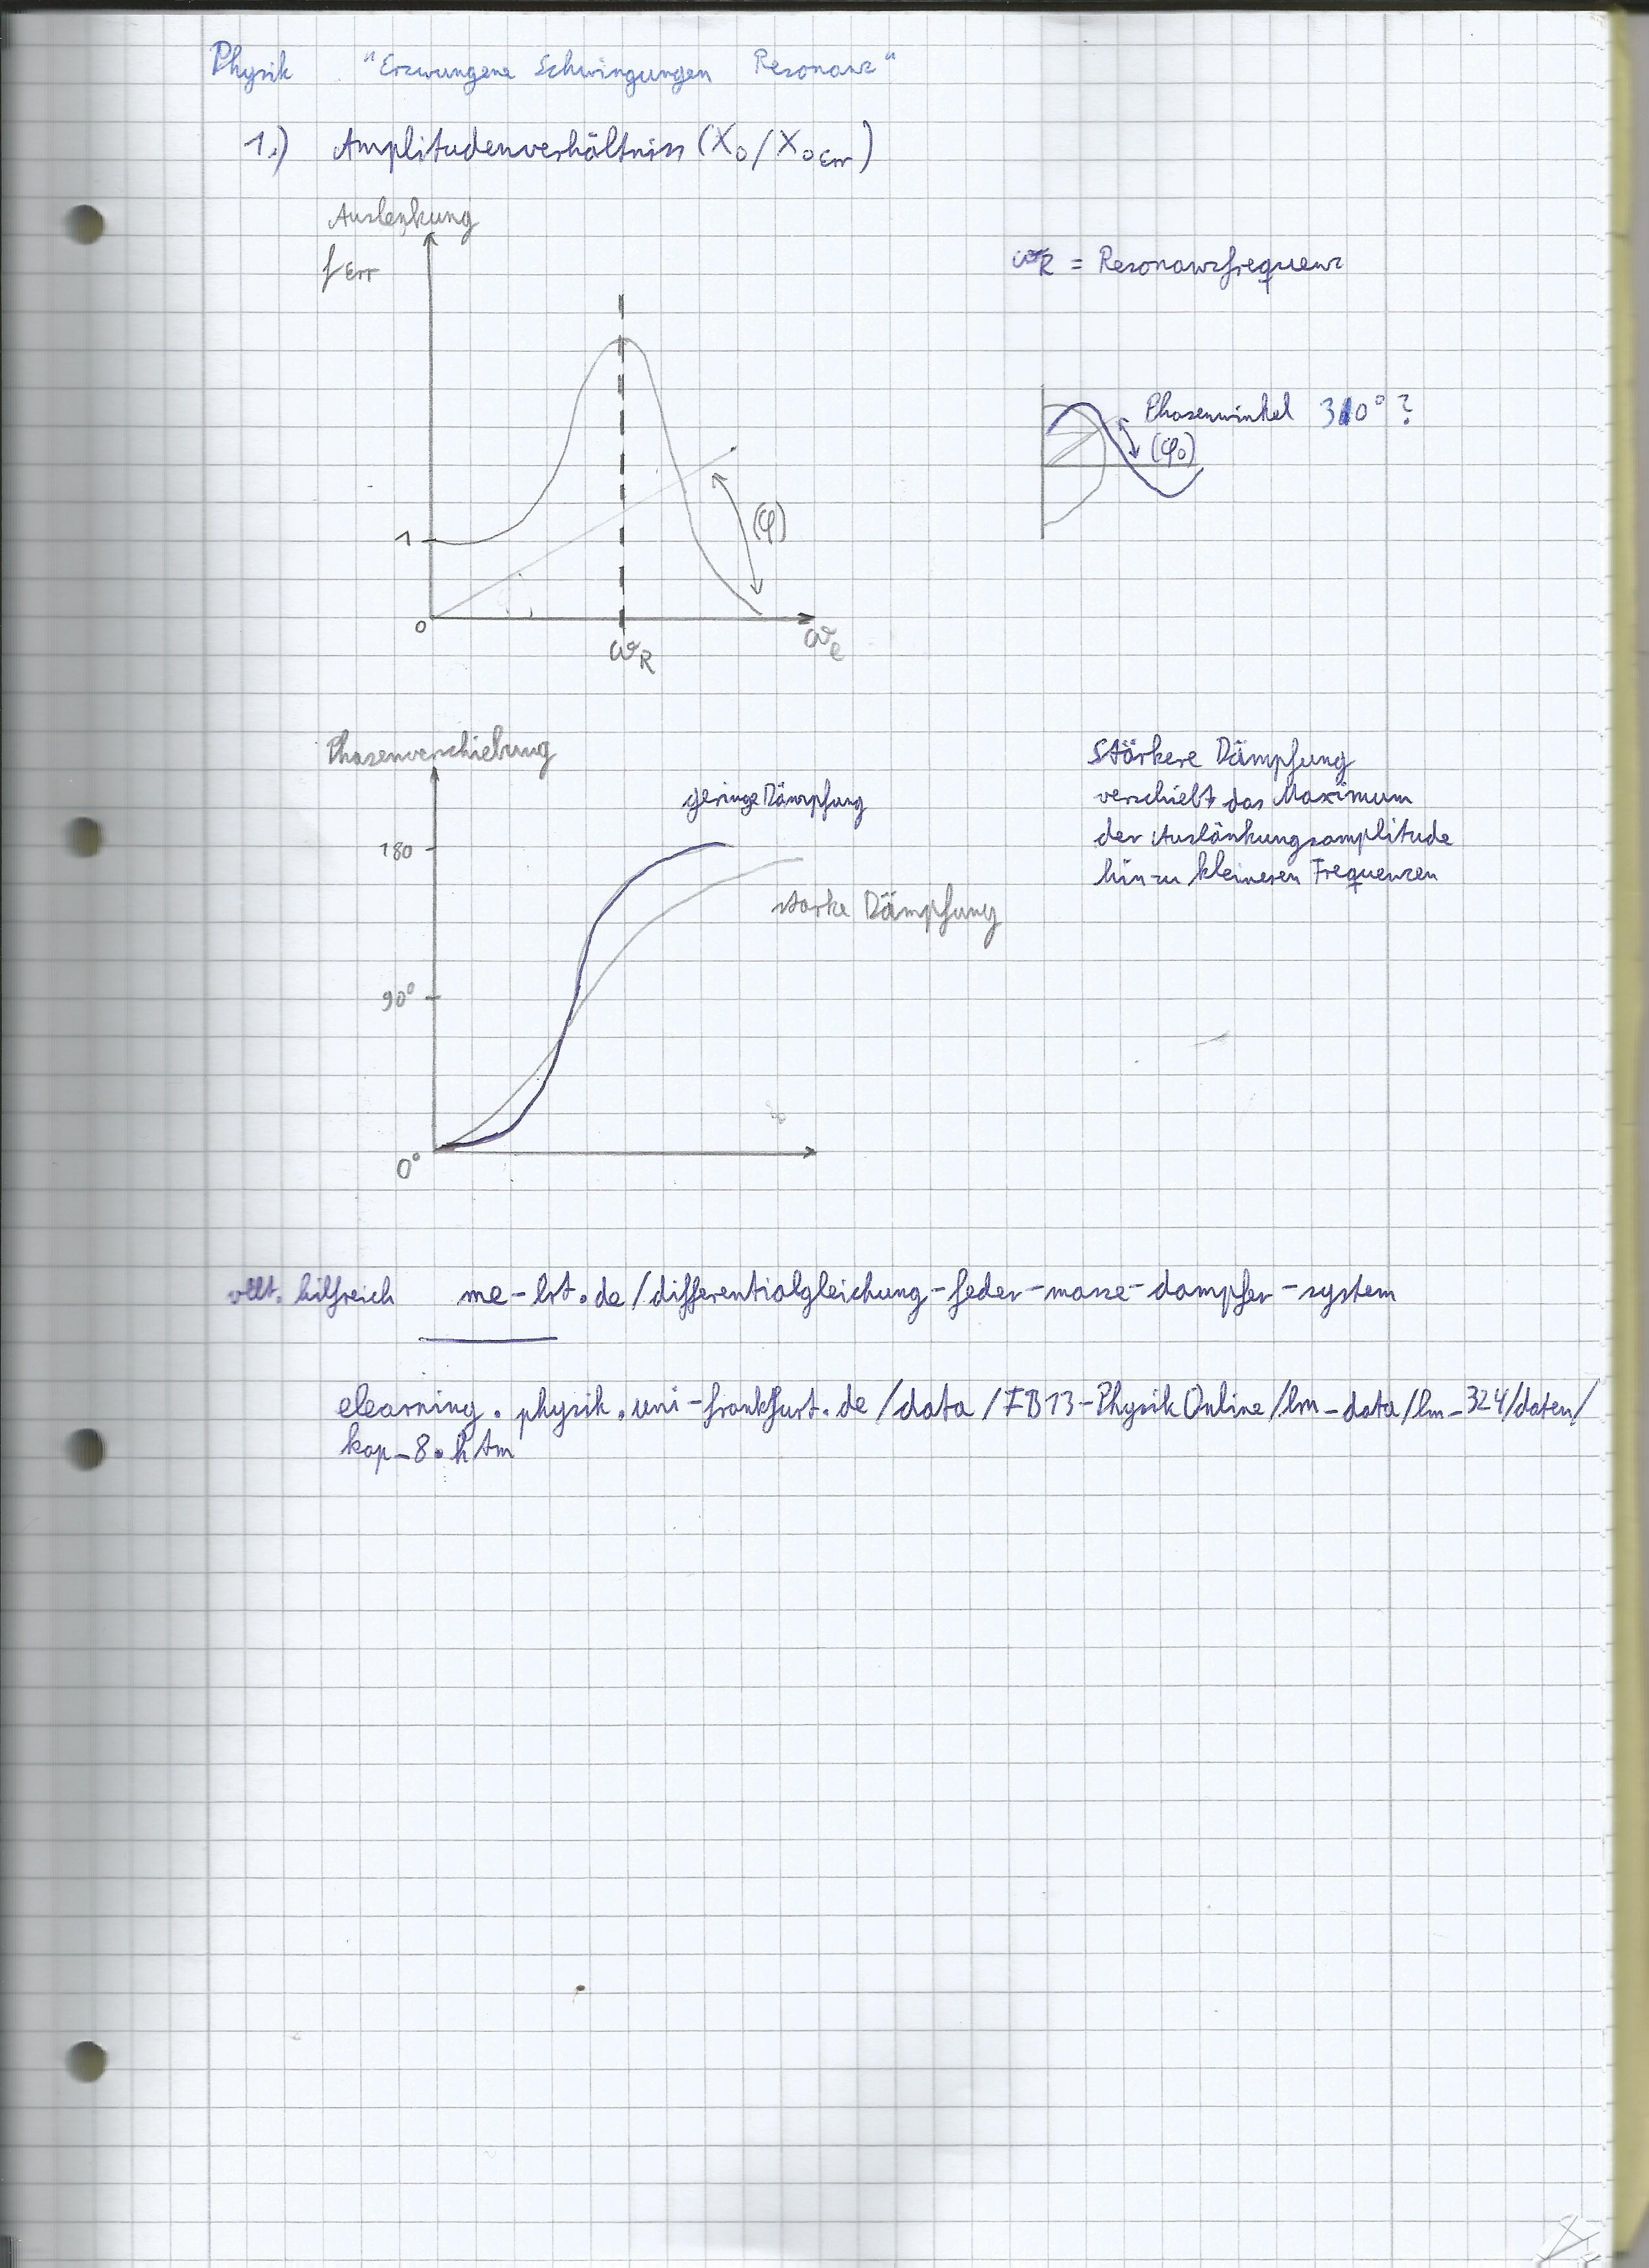 Physik "Erzwungene Schwingungen Resonanz"
1.) Amplitudenverhältniss (X₀/X₀Err)
Auslenkung
fErr
ωR = Resonanzfrequenz
Phasenwinkel 310° ?
(φ₀)
(φ)
1
0
ωR
ωe
Phasenverschiebung
geringe Dämpfung
180
starke Dämpfung
90°
0°
Stärkere Dämpfung
verschiebt das Maximum
der Auslänkungsamplitude
hin zu kleineren Frequenzen
vllt. hilfreich me-lrt.de/differentialgleichung-feder-masse-dampfer-system
elearning.physik.uni-frankfurt.de/data/FB13-PhysikOnline/lm_data/lm_324/daten/
kap_8.htm